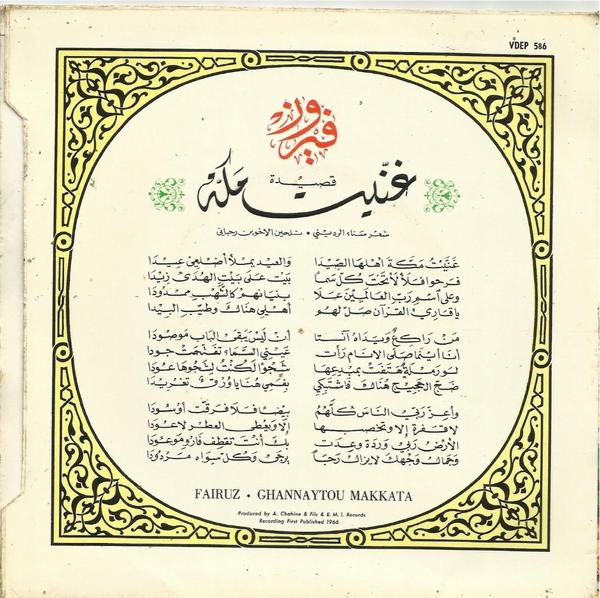 VDEP 586
فيروز
قصيدة
غنّيت مكة
شعر هناء الرديني • تلحين الاخوين رحباني
غَنَّيْتُ مَكَّةَ أهلهَا الصِّيدَا والعيد يمْلأ أضلعيْ عيدا
فرحوا فلألأ تحْتَ كلّ سما بيْت عَلى بَيْتِ الهُدَى زيْدا
وعلى اسم ربّ العالمين علا بنيانهم كالشّهْبِ ممْدُودَا
يا قارئ القرآن صل لهم أهلي هناك وطيّب البيْدا
مَنْ راكعٌ وَيداهُ آنستا أن ليْسَ يَبْقى الباب موصُودا
أنا أينما صلّى الأنام رأت عيْني السّماءَ تفتّحتْ جودا
لو رملةٌ هتَفتْ بمبْدعهَا شجْواً لكنْتُ لشجْوها عودا
ضجّ الحجيج هناك فاشتبكي بفمِي هنا يا وُرْقُ تغْريدا
وأعزّ ربّي الناسَ كلّهُم بيْضاً فلا فرقتَ أوْ سُودا
لا قفرة إلا وتخصبها إلا ويعْطي العطر لا عودا
الأرضُ ربّي وردة وُعدَت بك أنتَ تقطِف فارْوِ موْعودا
وجَمالُ وجْهكَ لا يزالُ رجاً يرجى وكلّ سواه مرْدُودا
FAIRUZ • GHANNAYTOU MAKKATA
Produced by A. Chahine & Fils & E. M. I. Records
Recording First Published 1966